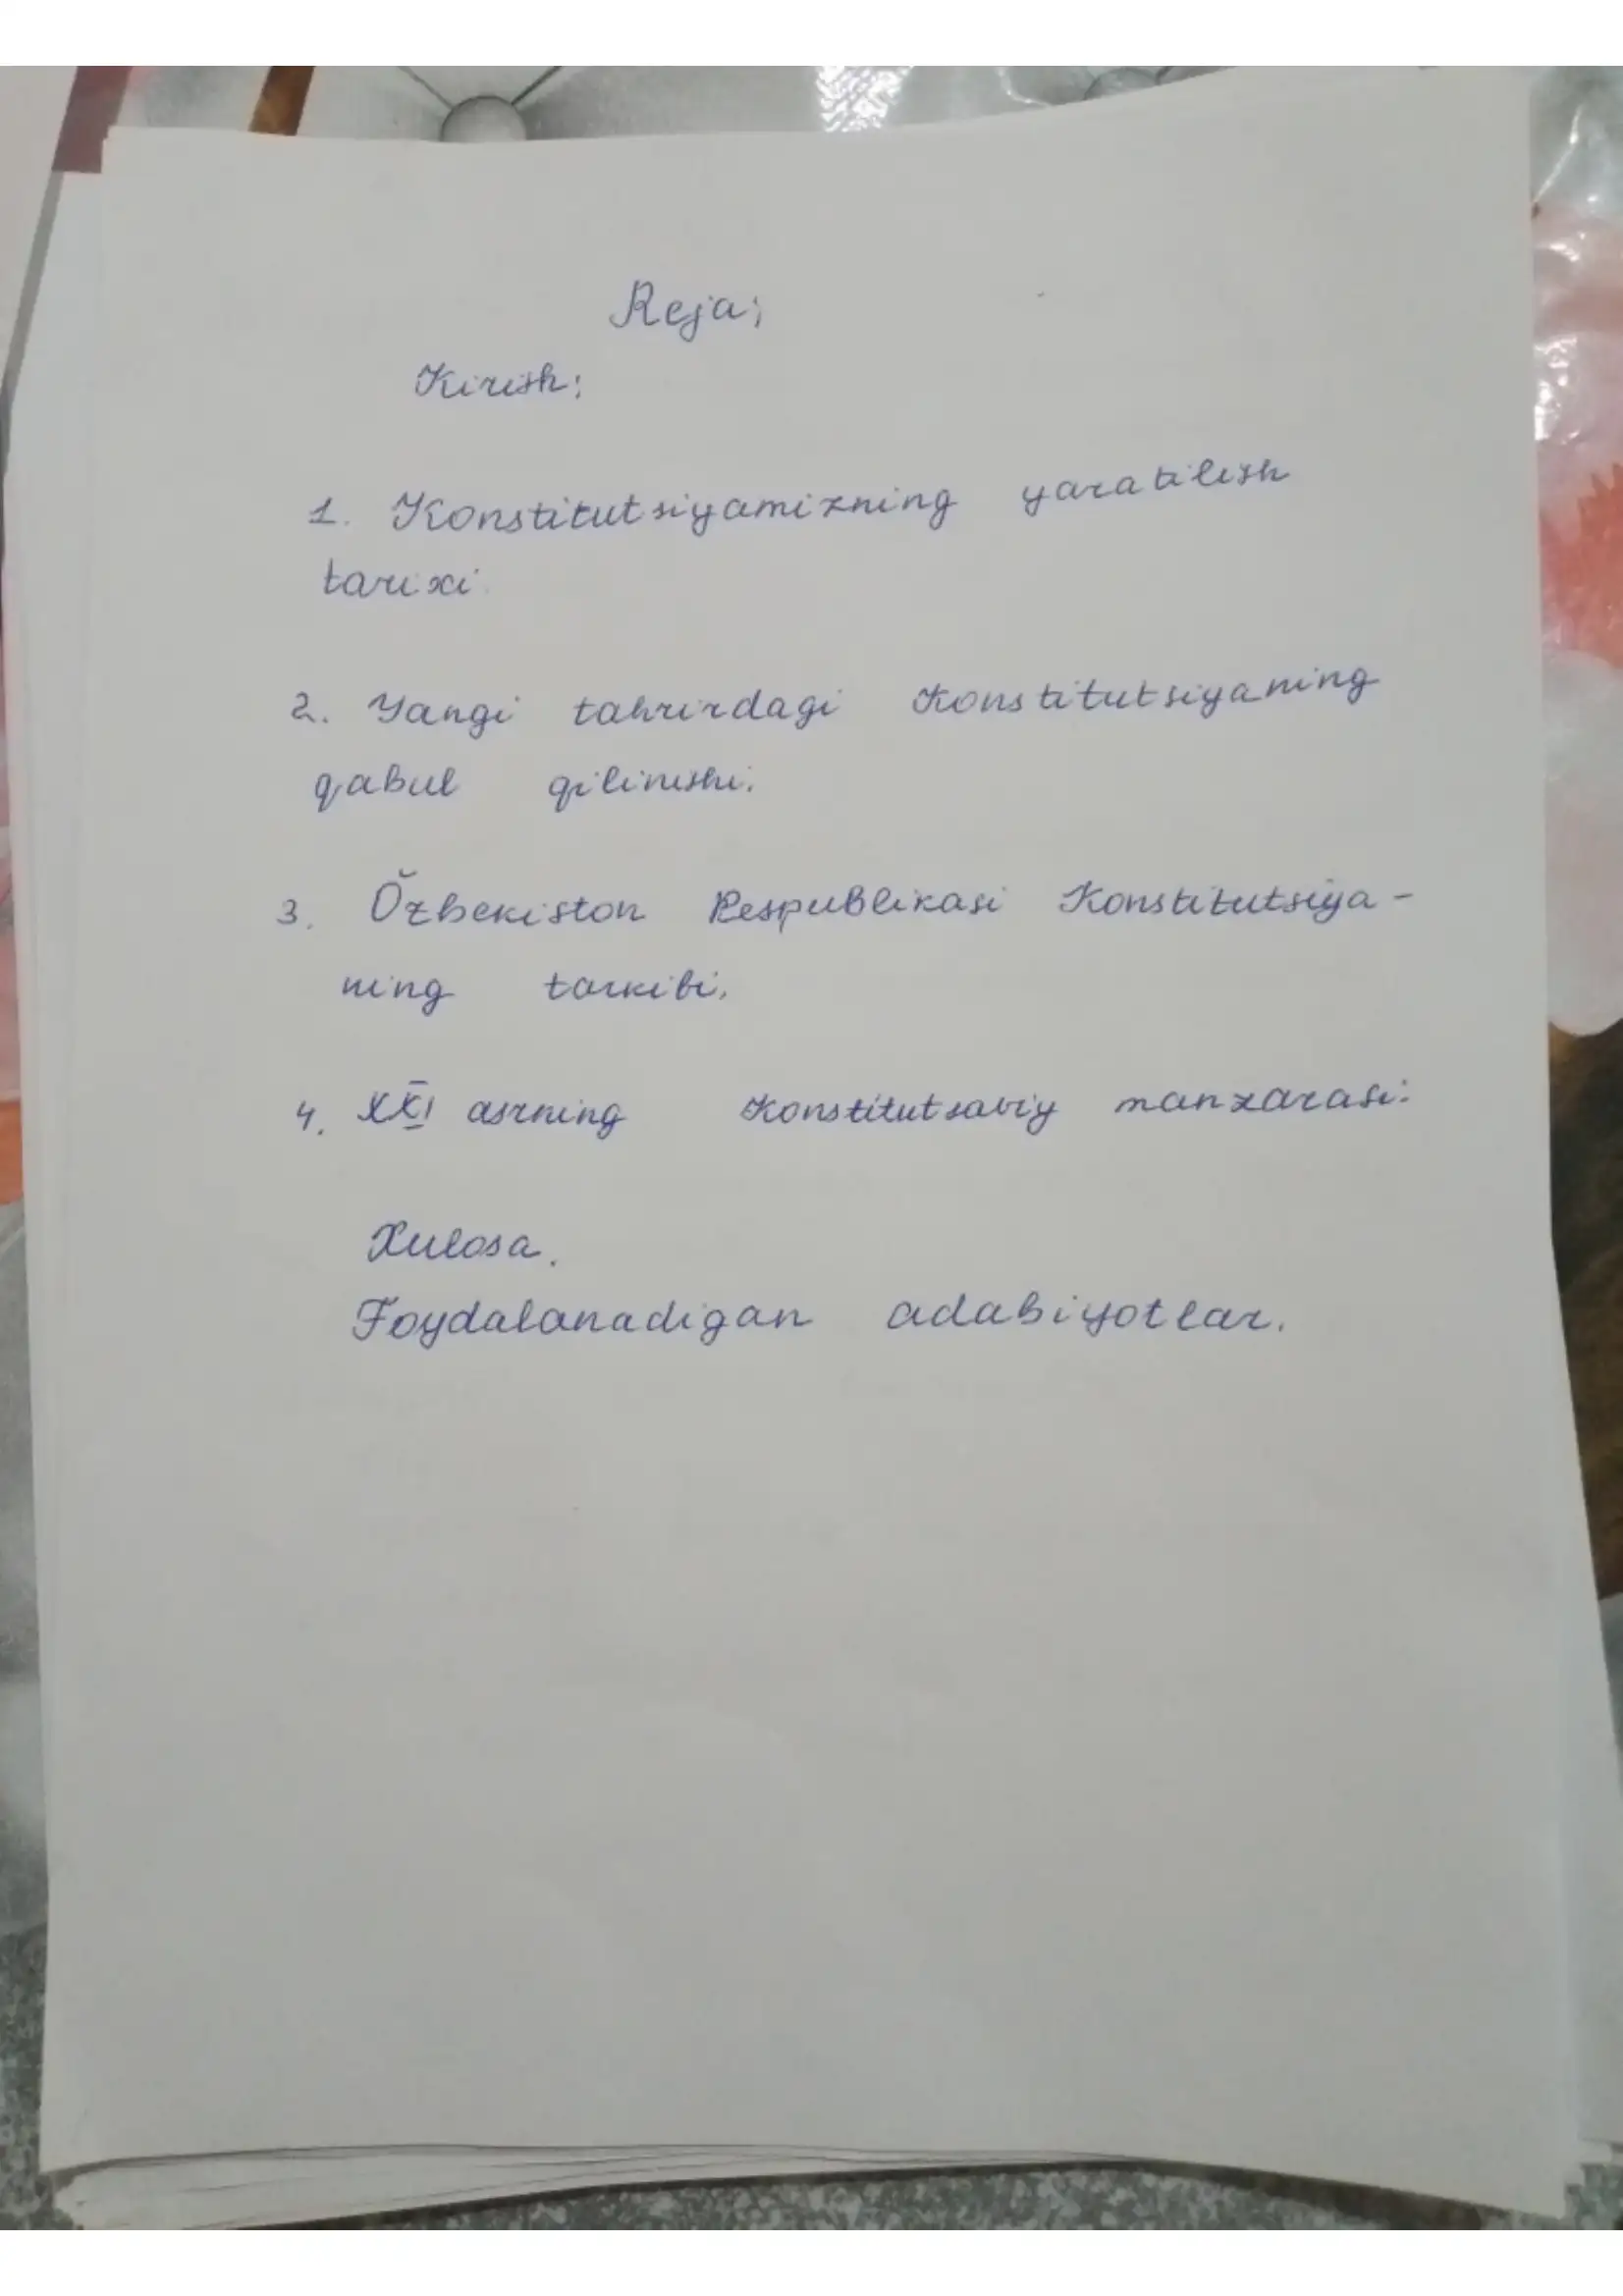 Reja;
Kirish;
1. Konstitutsiyamizning yaratilish
tarixi.
2. Yangi tahrirdagi Konstitutsiyaning
qabul qilinishi.
3. Õzbekiston Respublikasi Konstitutsiya-
ning tarkibi.
4. XXI asrning Konstitutsaviy manzarasi.
Xulosa.
Foydalanadigan adabiyotlar.